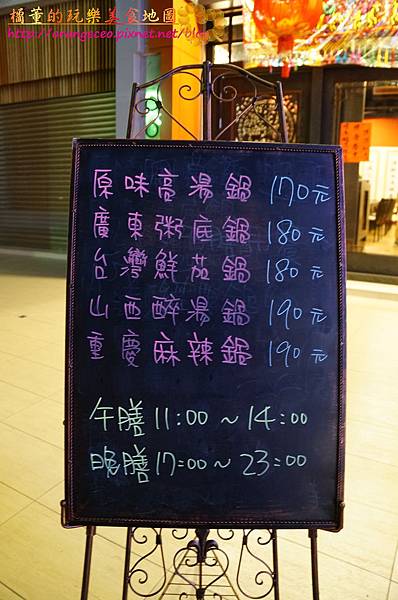 橘董的玩樂美食地圖
http://orangeceo.pixnet.net/blog
原味高湯鍋 170元
廣東粥底鍋 180元
台灣鮮茄鍋 180元
山西醉湯鍋 190元
重慶麻辣鍋 190元
午膳 11:00 ~ 14:00
晚膳 17:00 ~ 23:00